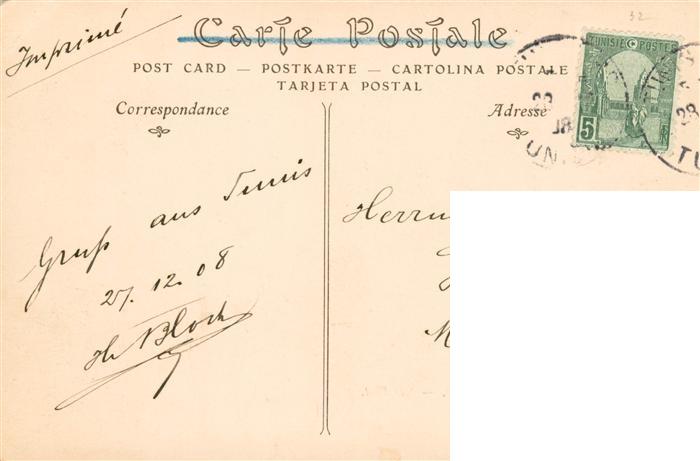 Imprimé
32
Carte Postale
POST CARD — POSTKARTE — CARTOLINA POSTALE
TARJETA POSTAL
Correspondance
Adresse
TUNISIE POSTES
5
28
08
TU
Gruß aus Tunis
27.12.08
H. Bloch
Herrn